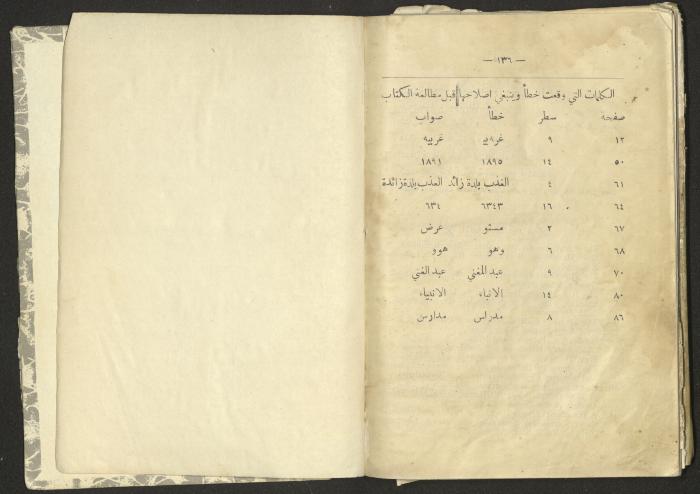 — ١٣٦ —
الكلمات التي وقعت خطأ وينبغي اصلاحها قبل مطالعة الكتاب
صفحة سطر خطأ صواب
١٢ ٩ غربي غربيه
٥٠ ١٤ ١٨٩٥ ١٨٩١
٦١ ٤ العذب بلدة زائد العذب بلدة زائدة
٦٤ ١٦ ٦٣٤٣ ٦٣٤
٦٧ ٢ مستو عرض
٦٨ ٦ وهو هوو
٧٠ ٩ عبد المغني عبد الغني
٨٠ ١٤ الانباء الانبياء
٨٦ ٨ مدراس مدارس